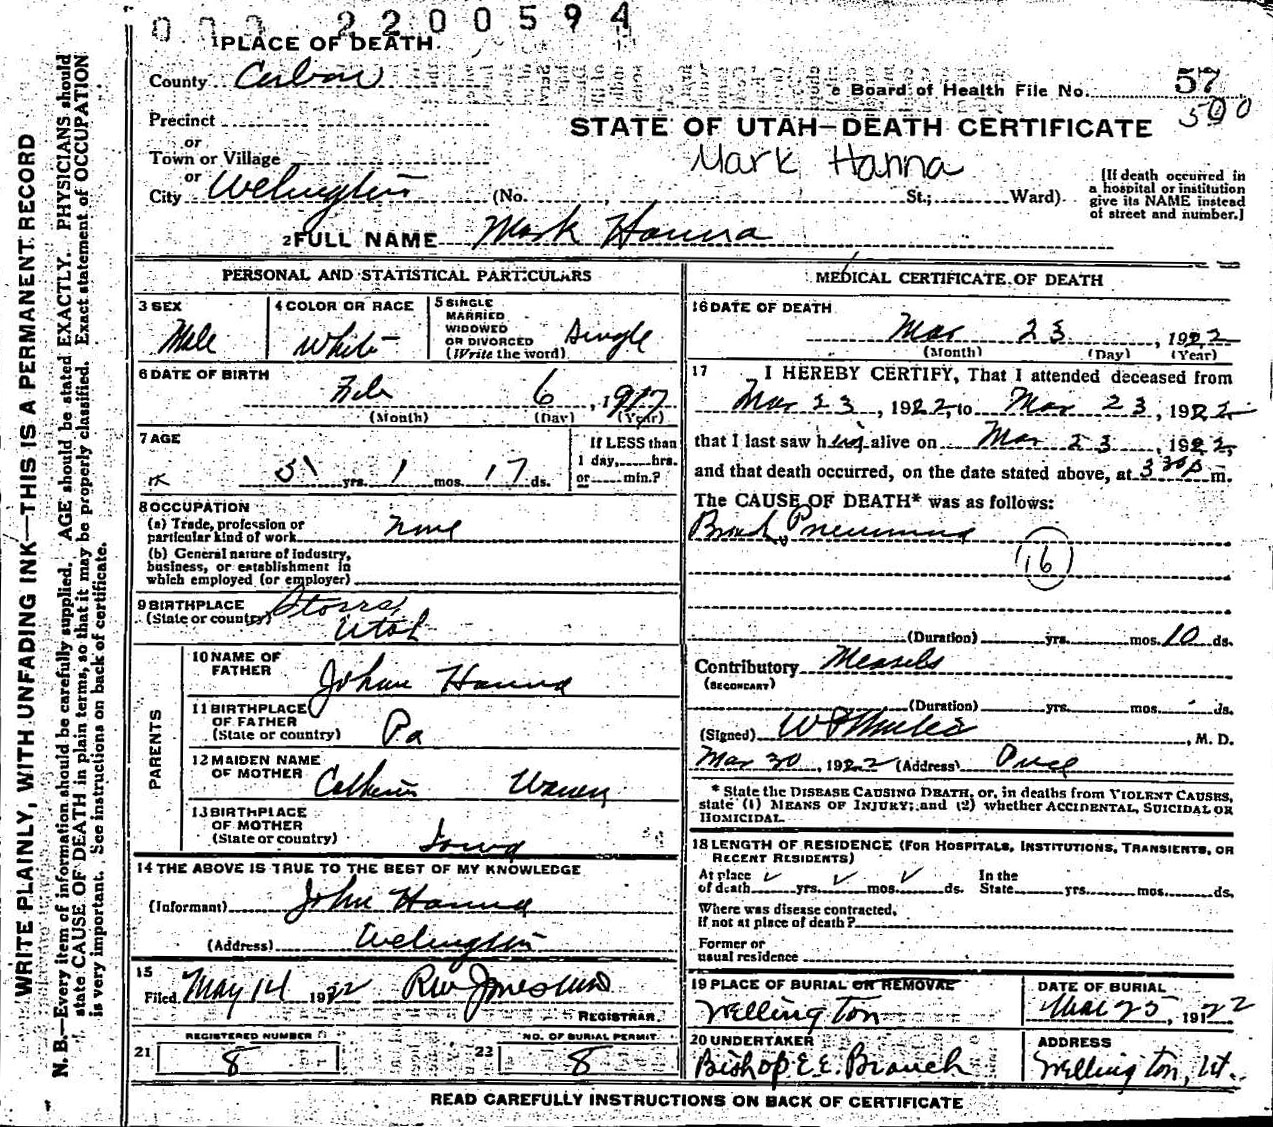 000 2200594
1 PLACE OF DEATH
County Carbon
e Board of Health File No. 57
500
Precinct
STATE OF UTAH—DEATH CERTIFICATE
or
Town or Village
Mark Hanna
or
City Welington (No. , St.; Ward)
[If death occurred in
a hospital or institution
give its NAME instead
of street and number.]
2 FULL NAME Mark Hanna
PERSONAL AND STATISTICAL PARTICULARS
3 SEX
Male
4 COLOR OR RACE
White
5 SINGLE
MARRIED
WIDOWED
OR DIVORCED
(Write the word)
Single
6 DATE OF BIRTH
Feb 6, 1917
(Month) (Day) (Year)
7 AGE
5 yrs. 1 mos. 17 ds.
If LESS than
1 day, hrs.
or min.?
8 OCCUPATION
(a) Trade, profession or
particular kind of work none
(b) General nature of Industry,
business, or establishment in
which employed (or employer)
9 BIRTHPLACE
(State or country)
Storrs,
Utah
PARENTS
10 NAME OF
FATHER
John Hanna
11 BIRTHPLACE
OF FATHER
(State or country)
Pa
12 MAIDEN NAME
OF MOTHER
Catherin Warren
13 BIRTHPLACE
OF MOTHER
(State or country)
Iowa
14 THE ABOVE IS TRUE TO THE BEST OF MY KNOWLEDGE
(Informant) John Hanna
(Address) Welington
15
Filed May 14 1922
REGISTRAR
REGISTERED NUMBER
21 8
NO. OF BURIAL PERMIT
22 8
MEDICAL CERTIFICATE OF DEATH
16 DATE OF DEATH
Mar 23, 1922
(Month) (Day) (Year)
17 I HEREBY CERTIFY, That I attended deceased from
Mar 23, 1922, to Mar 23, 1922
that I last saw him alive on Mar 23, 1922,
and that death occurred, on the date stated above, at 3 30 p m.
The CAUSE OF DEATH* was as follows:
Bronch Pneumonia
16
(Duration) yrs. mos. 10 ds.
Contributory Measels
(SECONDARY)
(Duration) yrs. mos. ds.
(Signed) , M. D.
Mar 30, 1922 (Address) Price
* State the DISEASE CAUSING DEATH, or, in deaths from VIOLENT CAUSES,
state (1) MEANS OF INJURY; and (2) whether ACCIDENTAL, SUICIDAL OR
HOMICIDAL.
18 LENGTH OF RESIDENCE (FOR HOSPITALS, INSTITUTIONS, TRANSIENTS, OR
RECENT RESIDENTS)
At place
of death yrs. mos. ds.
In the
State yrs. mos. ds.
Where was disease contracted,
if not at place of death?
Former or
usual residence
19 PLACE OF BURIAL OR REMOVAL
Wellington
DATE OF BURIAL
Mar 25, 1922
20 UNDERTAKER
Bishop E. E. Branch
ADDRESS
Wellington, Ut.
READ CAREFULLY INSTRUCTIONS ON BACK OF CERTIFICATE
WRITE PLAINLY, WITH UNFADING INK—THIS IS A PERMANENT RECORD
N. B.—Every item of information should be carefully supplied. AGE should be stated EXACTLY. PHYSICIANS should
state CAUSE OF DEATH in plain terms, so that it may be properly classified. Exact statement of OCCUPATION
is very important. See instructions on back of certificate.